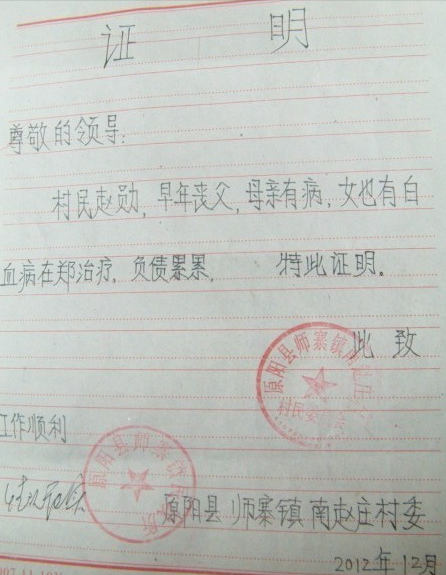 证 明
尊敬的领导:
村民赵勋,早年丧父,母亲有病,女也有白
血病在郑治疗,负债累累, 特此证明。
此致
工作顺利
原阳县师寨镇南赵庄村委
2012年12月
原阳县师寨镇
村民委员会
原阳县师寨镇